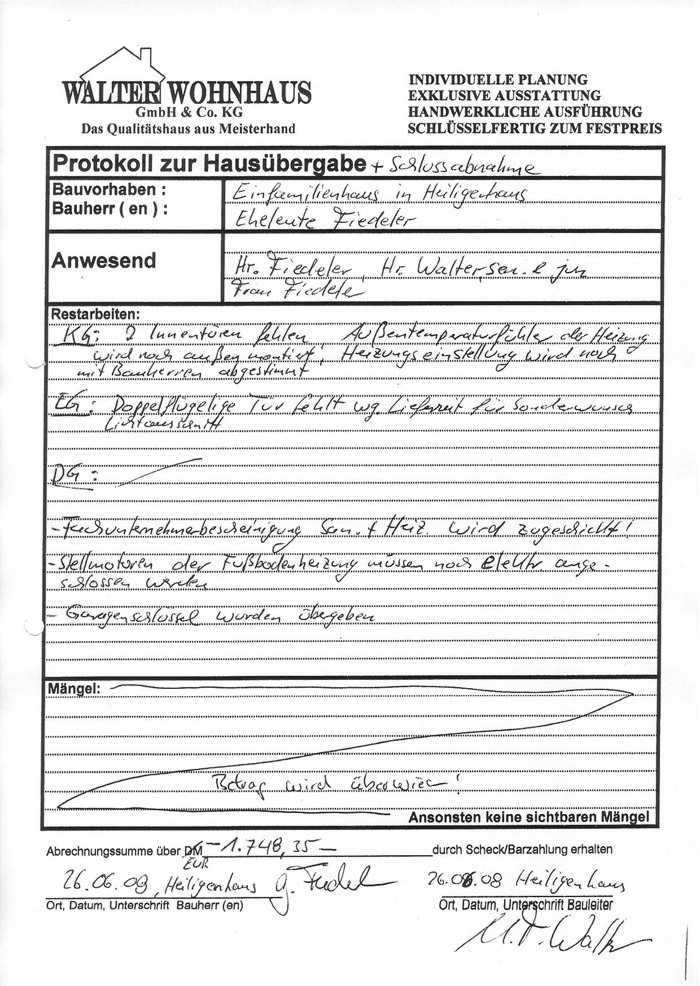 WALTER WOHNHAUS
GmbH & Co. KG
Das Qualitätshaus aus Meisterhand
INDIVIDUELLE PLANUNG
EXKLUSIVE AUSSTATTUNG
HANDWERKLICHE AUSFÜHRUNG
SCHLÜSSELFERTIG ZUM FESTPREIS
Protokoll zur Hausübergabe + Schlussabnahme
Bauvorhaben : Einfamilienhaus in Heiligenhaus
Bauherr ( en ) : Eheleute Fiedeler
Anwesend
Hr. Fiedeler, Hr. Walter sen. & jun
Frau Fiedeler
Restarbeiten:
KG: 2 Innentüren fehlen, Außentemperaturfühler der Heizung
wird noch außen montiert, Heizungseinstellung wird noch
mit Bauherren abgestimmt
EG: Doppelflügelige Tür fehlt wg Lieferzeit für Sonderwunsch
Lichtausschnitt
DG:
- Fachunternehmerbescheinigung San. + Heiz. wird zugeschickt!
- Stellmotoren der Fußbodenheizung müssen noch elektr ange-
schlossen werden
- Garagenschlüssel wurden übergeben
Mängel:
Betrag wird überwiesen!
Ansonsten keine sichtbaren Mängel
Abrechnungssumme über DM 1.748,35- durch Scheck/Barzahlung erhalten
EUR
26.06.08, Heiligenhaus
26.06.08 Heiligenhaus
Ort, Datum, Unterschrift Bauherr (en)
Ort, Datum, Unterschrift Bauleiter